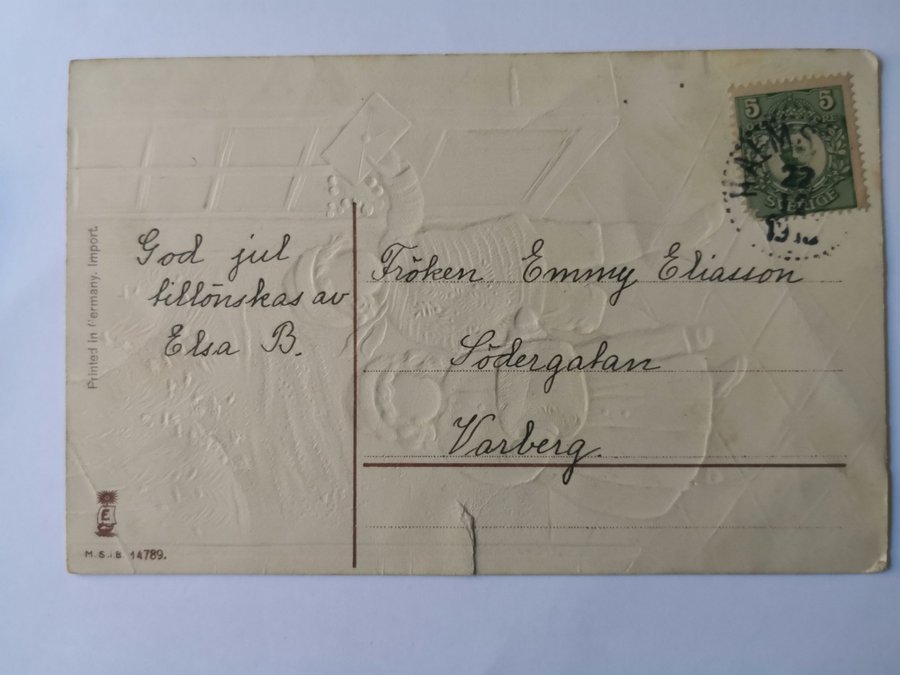 5 5
SVERIGE
22
God jul
tillönskas av
Elsa B.
Fröken Emmy Eliasson
Södergatan
Varberg.
Printed in Germany. Import.
E
M. S. i. B. 14789.